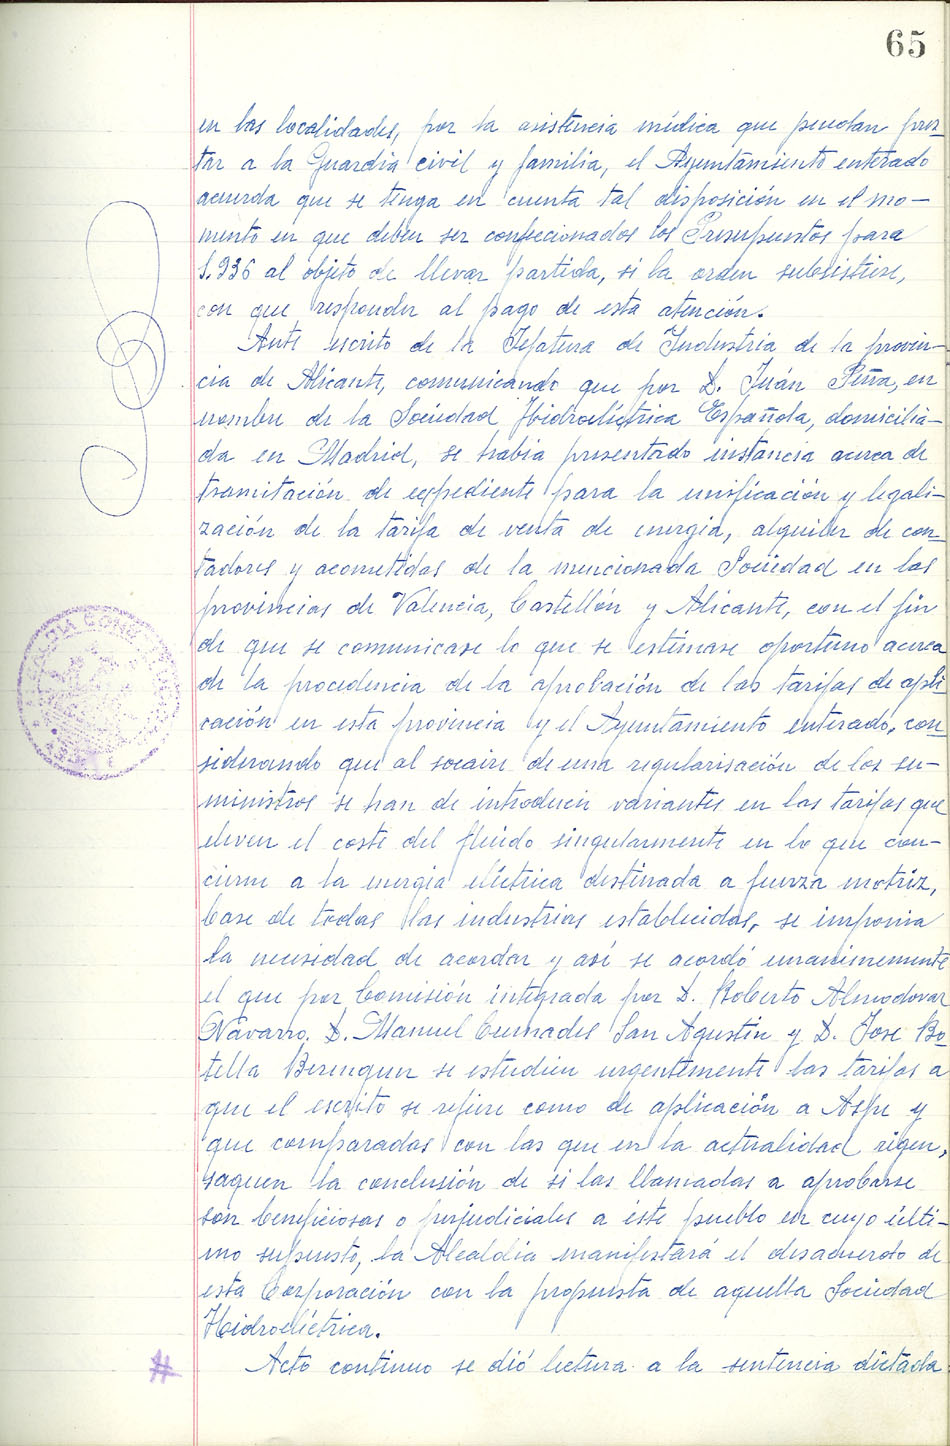 65
en las localidades, por la asistencia médica que puedan pres-
tar a la Guardia civil y familia, el Ayuntamiento enterado
acuerda que se tenga en cuenta tal disposición en el mo-
mento en que deben ser confeccionados los Presupuestos para
1.936 al objeto de llevar partida, si la orden subsistiere,
con que responder al pago de esta atención.
Ante escrito de la Jefatura de Industria de la provin-
cia de Alicante, comunicando que por D. Juán Peña, en
nombre de la Sociedad Hidroeléctrica Española, domicilia-
da en Madrid, se habia presentado instancia acerca de
tramitación de expediente para la unificación y legali-
zación de la tarifa de venta de energia, alquiler de con-
tadores y acometidas de la mencionada Sociedad en las
provincias de Valencia, Castellón y Alicante, con el fin
de que se comunicase lo que se estimase oportuno acerca
de la procedencia de la aprobación de las tarifas de apli
cación en esta provincia y el Ayuntamiento enterado, con-
siderando que al socaire de una regularisación de los su-
ministros se han de introducir variantes en las tarifas que
eleven el coste del fluido singularmente en lo que con-
cierne a la energia eléctrica destinada a fuerza motriz,
base de todas las industrias establecidas, se imponia
la necesidad de acordar y asi se acordó unanimemente
el que por Comisión integrada por D. Roberto Almodovar
Navarro, D. Manuel Cremades San Agustin y D. Jose Bo-
tella Berenguer se estudien urgentemente las tarifas a
que el escrito se refiere como de aplicación a Aspe y
que comparadas con las que en la actualidad rigen,
saquen la conclusión de si las llamadas a aprobarse
son beneficiosas o perjudiciales a este pueblo en cuyo últi-
mo supuesto, la Alcaldia manifestará el desacuerdo de
esta Corporación con la propuesta de aquella Sociedad
Hidroeléctrica.
# Acto continuo se dió lectura a la sentencia dictada